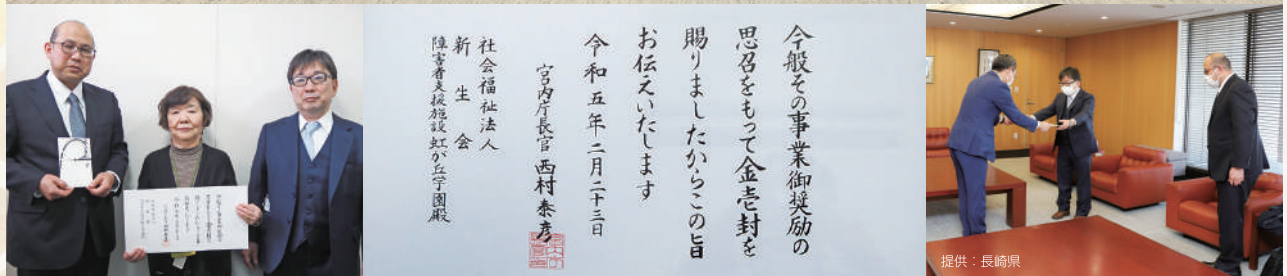 今般その事業御奨励の
思召をもって金壱封を
賜りましたからこの旨
お伝えいたします
令和五年二月二十三日
宮内庁長官 西村泰彦
社会福祉法人
新生会
障害者支援施設虹が丘学園殿
提供：長崎県